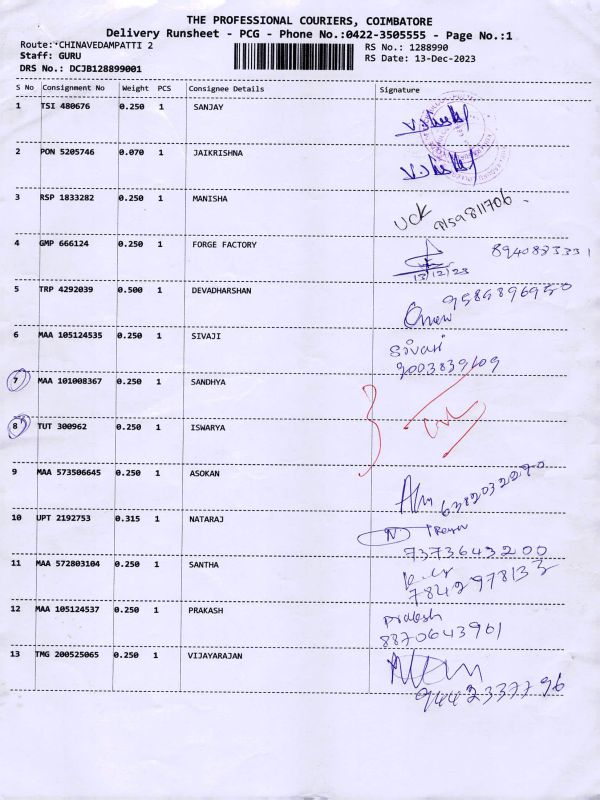 THE PROFESSIONAL COURIERS, COIMBATORE
Delivery Runsheet - PCG - Phone No.:0422-3505555 - Page No.:1
Route: CHINAVEDAMPATTI 2 RS No.: 1288990
Staff: GURU RS Date: 13-Dec-2023
DRS No.: DCJB128899001
S No Consignment No Weight PCS Consignee Details Signature
1 TSI 480676 0.250 1 SANJAY
2 PON 5205746 0.070 1 JAIKRISHNA
3 RSP 1833282 0.250 1 MANISHA
UCK 9159811706
4 GMP 666124 0.250 1 FORGE FACTORY
13/12/23
5 TRP 4292039 0.500 1 DEVADHARSHAN
6 MAA 105124535 0.250 1 SIVAJI
7 MAA 101008367 0.250 1 SANDHYA
8 TUT 300962 0.250 1 ISWARYA
9 MAA 573506645 0.250 1 ASOKAN
6382032270
10 UPT 2192753 0.315 1 NATARAJ
7373643200
11 MAA 572803104 0.250 1 SANTHA
7842978133
12 MAA 105124537 0.250 1 PRAKASH
Prakash
8870643901
13 TMG 200525065 0.250 1 VIJAYARAJAN
9442337796